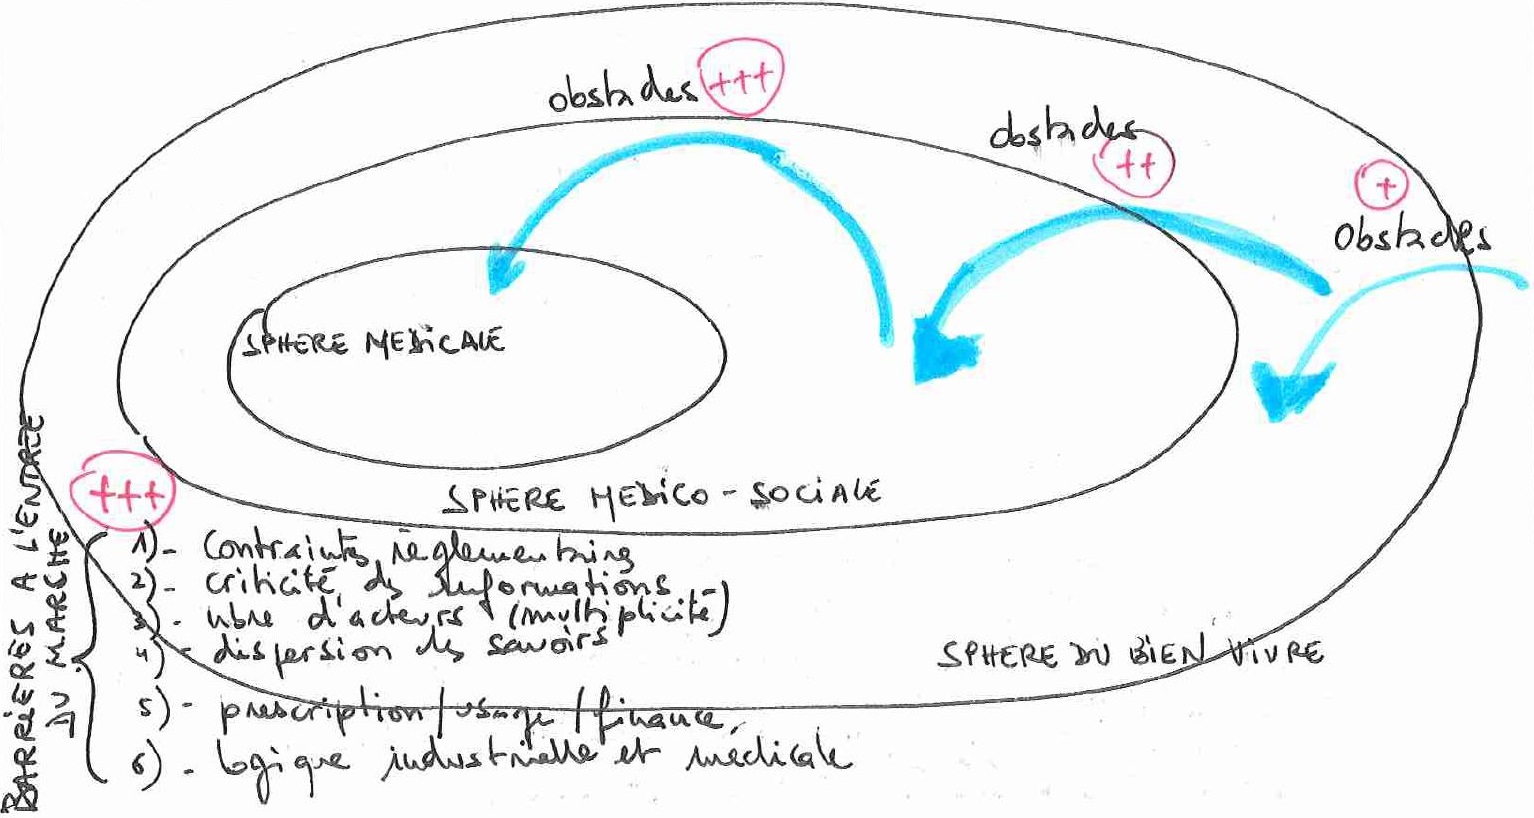 obstacles +++
obstacles
++
+
Obstacles
SPHERE MEDICALE
SPHERE MEDICO-SOCIALE
SPHERE DU BIEN VIVRE
BARRIERES A L'ENTREE
DU MARCHE
+++
1)- Contraintes réglementaires
2)- criticité des informations
3)- nbre d'acteurs (multiplicité)
4)- dispersion des savoirs
5)- prescription/usage/finance
6)- logique industrielle et médicale